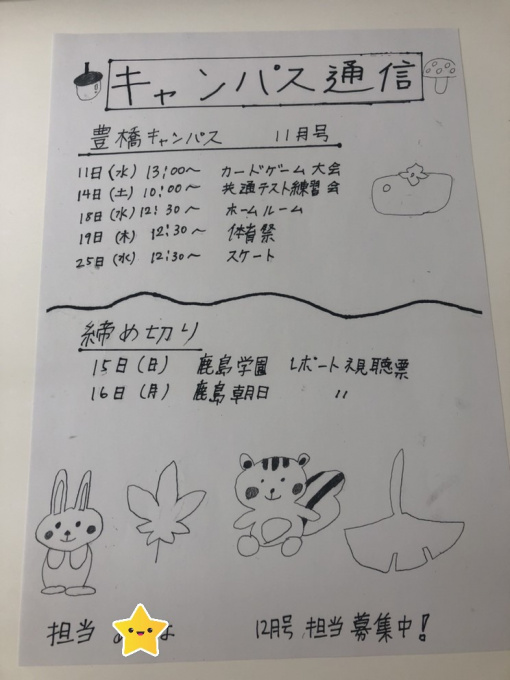 キャンパス通信
豊橋キャンパス 11月号
11日(水) 13:00〜 カードゲーム大会
14日(土) 10:00〜 共通テスト練習会
18日(水) 12:30〜 ホームルーム
19日(木) 12:30〜 体育祭
25日(水) 12:30〜 スケート
締め切り
15日(日) 鹿島学園 レポート視聴票
16日(月) 鹿島朝日 〃
担当
12月号 担当募集中!